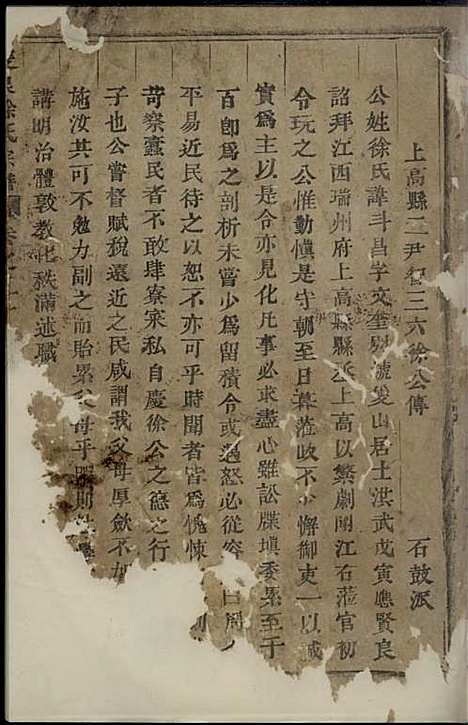 上高縣二尹智三六徐公傳　石鼓派
公姓徐氏諱斗昌字文奎別號叢山居士洪武戊寅應賢良
詔拜江西瑞州府上高縣縣丞上高以繁劇聞江右蒞官初
令玩之公惟勤慎是守朝至日暮蒞政不少懈御吏一以誠
實爲主以是令亦見化凡事必求盡心雖訟牒塡委累至于
百卽爲之剖析未嘗少爲留積令或過怒必從容
平易近民待之以恕不亦可乎時聞者皆爲愧悚
苛察蠹民者不敢肆寮寀私自慶徐公之德之行
子也公嘗督賦稅遠近之民咸謂我父母厚斂不加
施汝共可不勉力副之而貽累父母乎
講明治體敦教化秩滿述職
徐氏宗譜